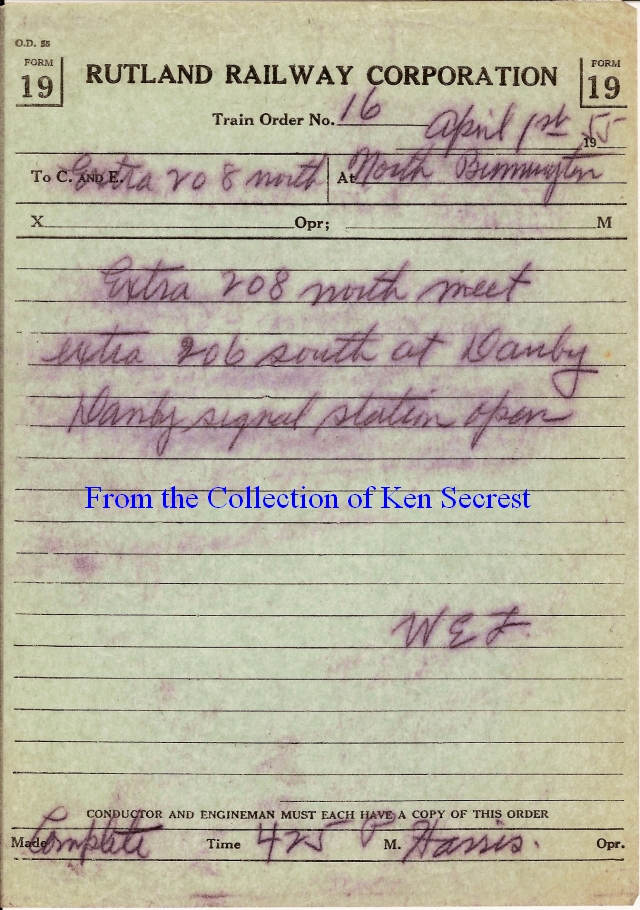 O.D. 55
FORM 19
RUTLAND RAILWAY CORPORATION
FORM 19
Train Order No. 16
April 1st 1955
To C. AND E. Extra 208 north At North Bennington
X Opr; M
Extra 208 north meet
extra 206 south at Danby
Danby signal station open
From the Collection of Ken Secrest
W E F
CONDUCTOR AND ENGINEMAN MUST EACH HAVE A COPY OF THIS ORDER
Made Complete Time 425 P M. Harris. Opr.